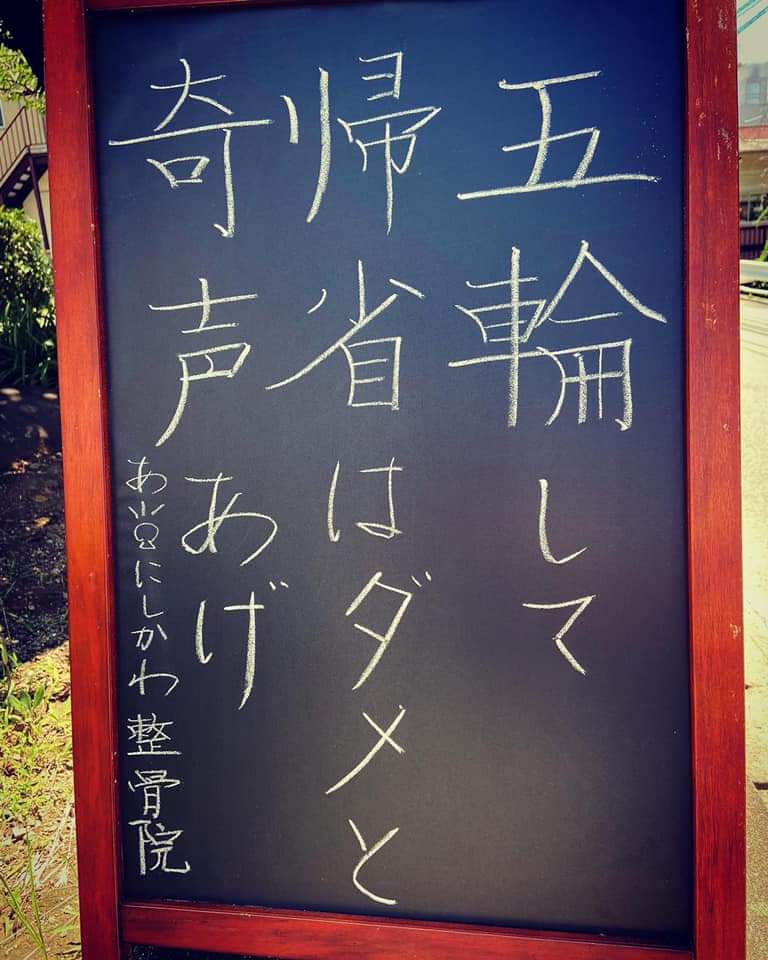 五輪して
帰省はダメと
奇声あげ
あ いにしかわ整骨院